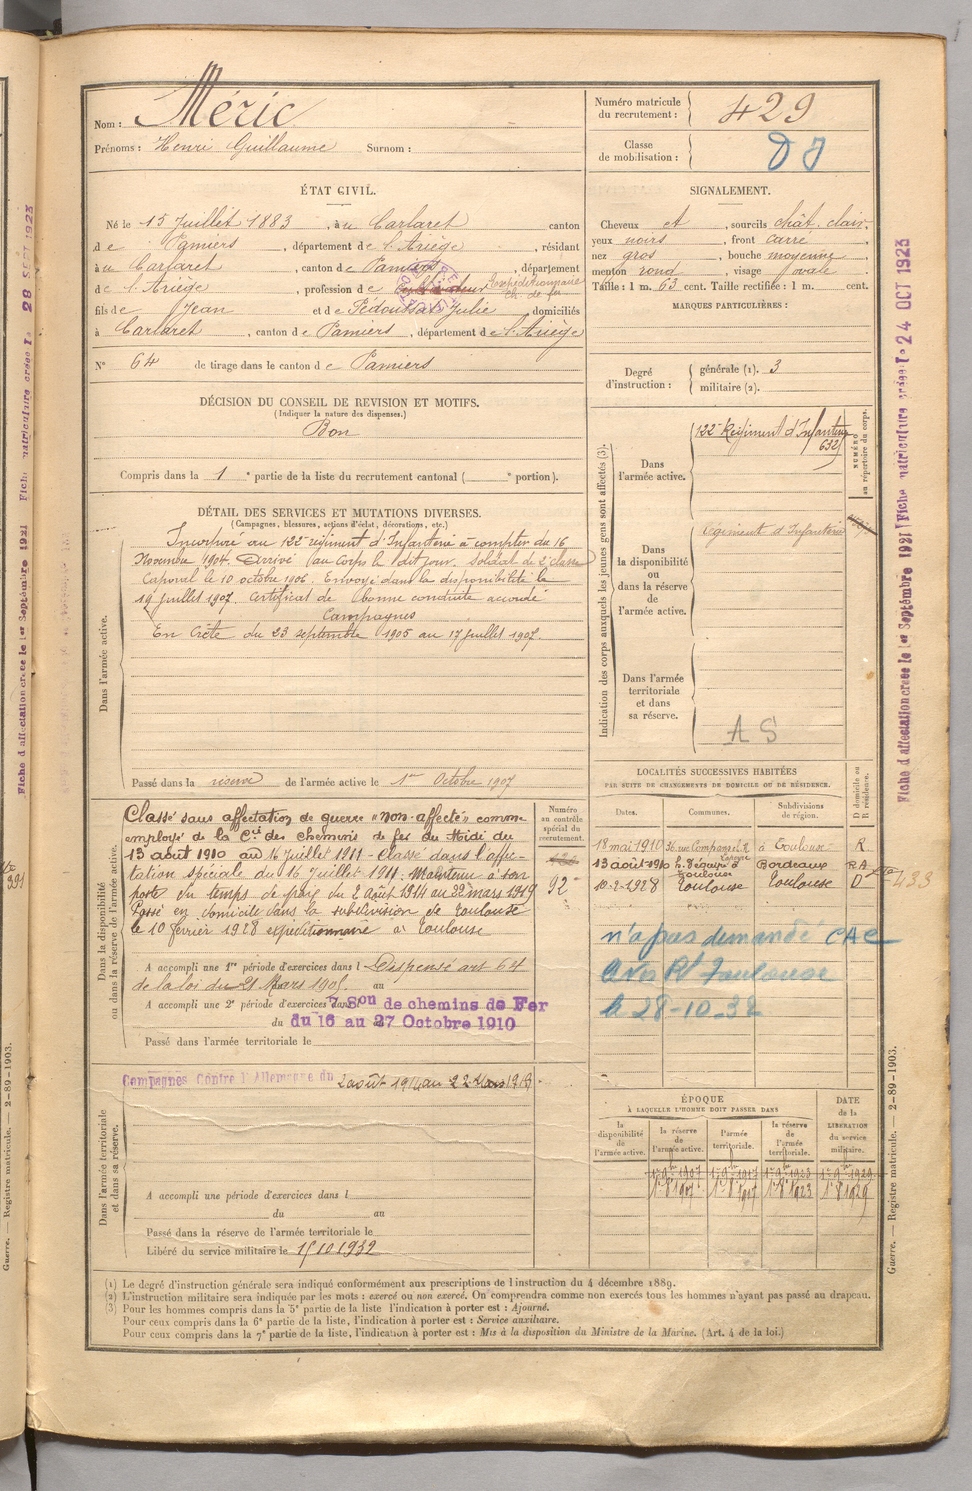 Nom : Méric
Prénoms : Henri Guillaume Surnom :
Numéro matricule du recrutement : 429
Classe de mobilisation :
ÉTAT CIVIL.
Né le 15 Juillet 1883, à u Carlaret canton
d e Pamiers, département d e l'Ariège, résidant
à u Carlaret, canton d e Pamiers, département
d e l'Ariège, profession d e Expéditionnaire Ch. de fer
fils d e Jean et d e Julie, domiciliés
à Carlaret, canton d e Pamiers, département d e l'Ariège
N° 64 de tirage dans le canton d e Pamiers
SIGNALEMENT.
Cheveux et, sourcils chât. clair.
yeux noirs, front carré
nez gros, bouche moyenne
menton rond, visage ovale
Taille : 1 m. 63 cent. Taille rectifiée : 1 m. cent.
MARQUES PARTICULIÈRES :
Degré d'instruction : générale (1). 3
militaire (2).
DÉCISION DU CONSEIL DE REVISION ET MOTIFS.
(Indiquer la nature des dispenses.)
Bon
Compris dans la 1e partie de la liste du recrutement cantonal ( e portion).
DÉTAIL DES SERVICES ET MUTATIONS DIVERSES.
(Campagnes, blessures, actions d'éclat, décorations, etc.)
Dans l'armée active.
Incorporé au 122e régiment d'Infanterie à compter du 16
Novembre 1904. Arrivé au corps le dit jour. Soldat de 2e classe
Caporal le 10 octobre 1906. Envoyé dans la disponibilité le
19 juillet 1907. Certificat de bonne conduite accordé
Campagnes
En Crète du 23 septembre 1905 au 17 juillet 1907
Passé dans la réserve de l'armée active le 1er Octobre 1907
Indication des corps auxquels les jeunes gens sont affectés (3).
NUMÉRO au répertoire du corps.
Dans l'armée active. 122e Régiment d'Infanterie
632
Dans la disponibilité ou dans la réserve de l'armée active. régiment d'Infanterie
Dans l'armée territoriale et dans sa réserve.
A S
Dans la disponibilité ou dans la réserve de l'armée active.
Classé sans affectation de guerre "non-affecté" comme
employé de la Cie des chemins de fer du Midi du
13 août 1910 au 16 Juillet 1911 - Classé dans l'affec-
tation spéciale du 16 Juillet 1911. Maintenu à son
poste du temps de paix du 2 Août 1914 au 22 mars 1919
Passé en domicile dans la subdivision de Toulouse
le 10 février 1928 expéditionnaire à Toulouse
Numéro au contrôle spécial du recrutement.
92
A accompli une 1re période d'exercices dans l Dispensé art 64
de la loi du 21 Mars 1905 au
A accompli une 2e période d'exercices dans 7 Son de chemins de Fer
du 16 au 27 Octobre 1910
Passé dans l'armée territoriale le
LOCALITÉS SUCCESSIVES HABITÉES
PAR SUITE DE CHANGEMENTS DE DOMICILE OU DE RÉSIDENCE.
Dates. Communes. Subdivisions de région. D domicile ou R résidence.
18 mai 1910 à Toulouse R
13 août 1910 Toulouse Bordeaux RA
10-2-1928 Toulouse Toulouse D
n'a pas demandé CAC
Avis Rt Toulouse
le 28-10-32
Dans l'armée territoriale et dans sa réserve.
Campagnes Contre l'Allemagne du 2 août 1914 au 22 Mars 1919
A accompli une période d'exercices dans l
du au
Passé dans la réserve de l'armée territoriale le
Libéré du service militaire le 15 10 1932
ÉPOQUE
À LAQUELLE L'HOMME DOIT PASSER DANS
la disponibilité de l'armée active. la réserve de l'armée active. l'armée territoriale. la réserve de l'armée territoriale.
DATE de la LIBÉRATION du service militaire.
(1) Le degré d'instruction générale sera indiqué conformément aux prescriptions de l'instruction du 4 décembre 1889.
(2) L'instruction militaire sera indiquée par les mots : exercé ou non exercé. On comprendra comme non exercés tous les hommes n'ayant pas passé au drapeau.
(3) Pour les hommes compris dans la 5e partie de la liste l'indication à porter est : Ajourné.
Pour ceux compris dans la 6e partie de la liste, l'indication à porter est : Service auxiliaire.
Pour ceux compris dans la 7e partie de la liste, l'indication à porter est : Mis à la disposition du Ministre de la Marine. (Art. 4 de la loi.)
Fiche d'affectation créée le 1er Septembre 1921 Fiche matriculaire créée le 24 OCT 1923
Guerre. — Registre matricule. — 2-89-1903.
Fiche d'affectation créée le 1er Septembre 1921 Fiche matriculaire créée le 28 SEPT 1923
Guerre. — Registre matricule. — 2-89-1903.
391